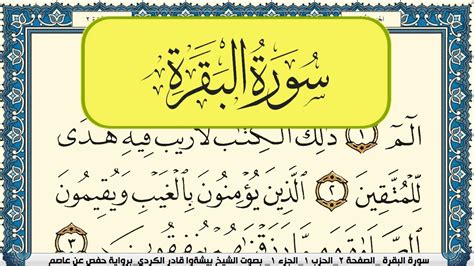 سُورَةُ البَقَرَةِ
الٓمٓ ١ ذَٰلِكَ الْكِتَٰبُ لَا رَيْبَ فِيهِ هُدًى
لِّلْمُتَّقِينَ ٢ الَّذِينَ يُؤْمِنُونَ بِالْغَيْبِ وَيُقِيمُونَ
رَزَقْنَٰهُمْ يُنفِقُونَ ٣
سورة البقرة _الصفحة ٢_الحزب ١_ الجزء ١_ بصوت الشيخ بيشةوا قادر الكردي_برواية حفص عن عاصم